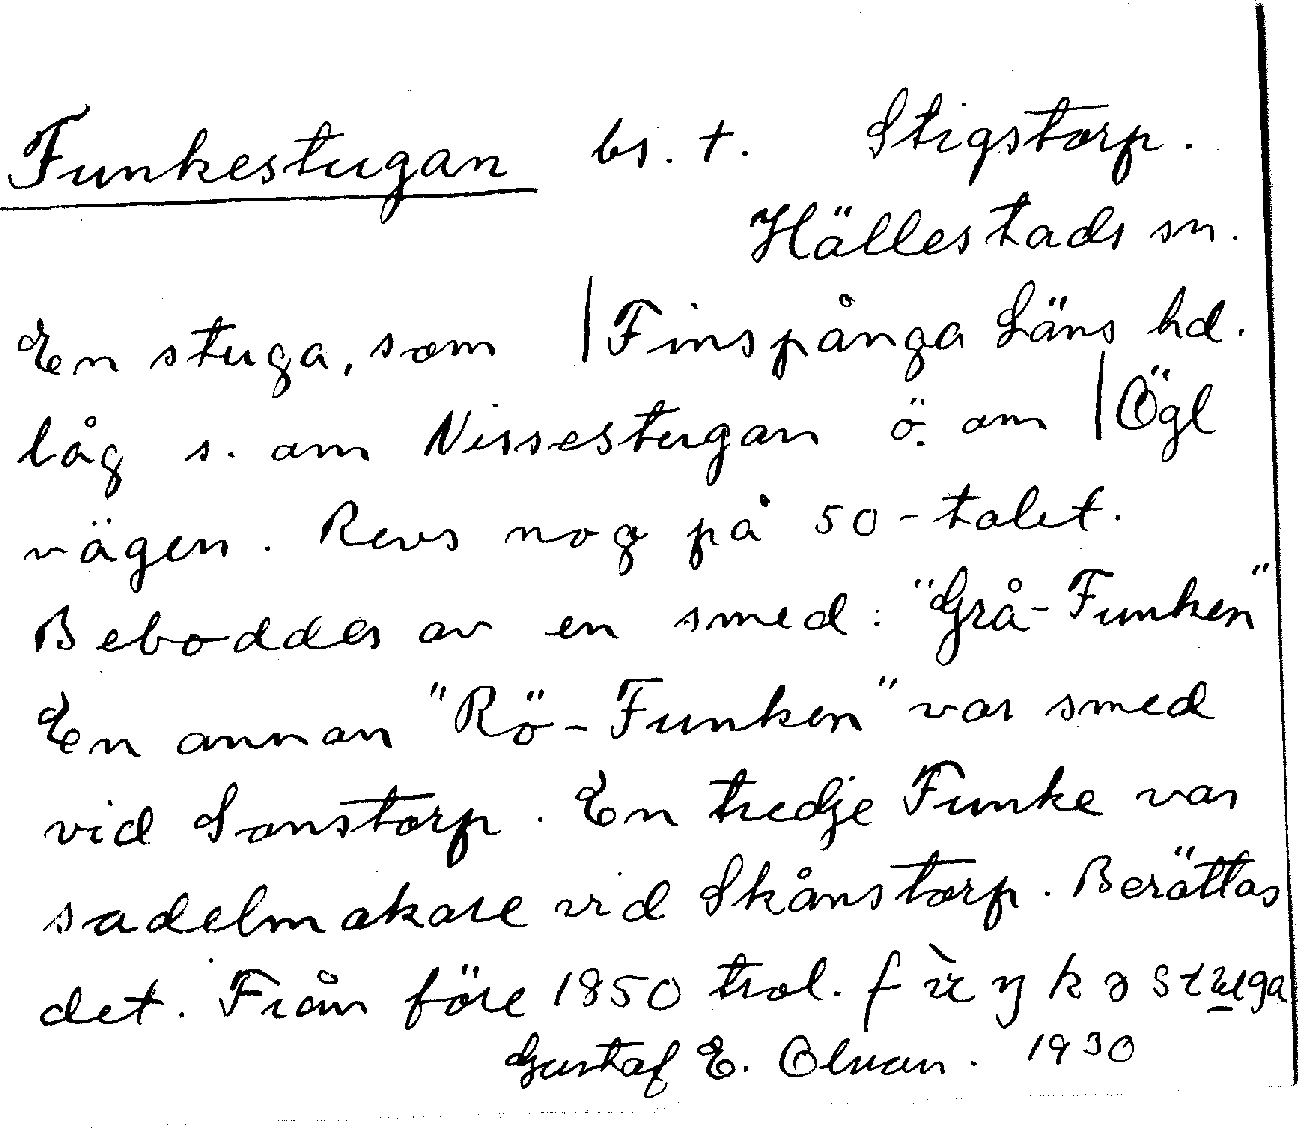 Funkestugan bs. t. Stigstorp.
Hällestads sn.
En stuga, som | Finspånga Läns hd.
låg s. om Nissestugan ö. om | Ögl
vägen. Revs nog på 50-talet.
Beboddes av en smed: "Grå-Funken"
En annan "Rö-Funken" var smed
vid Sonstorp. En tredje Funke var
sadelmakare vid Skånstorp. Berättas
det. Från före 1850 trol.
Gustaf E. 1930